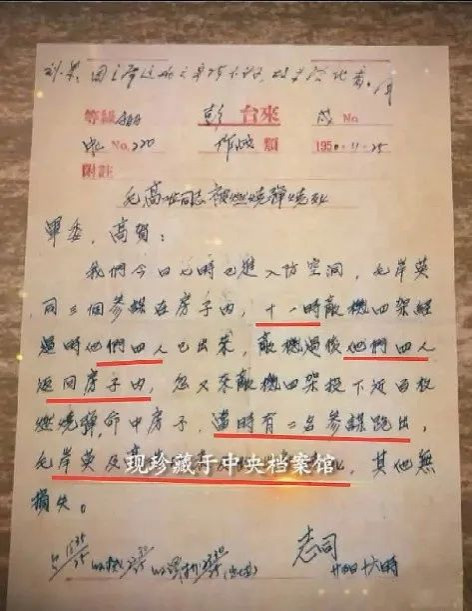 等級 彭 台來 No
No.220 作战類 1950-11-25
附註
同志被燃燒彈燒死
軍委、高賀:
我們今日七時已進入防空洞,毛岸英
同三個參謀在房子內,十一時敵機四架經
過時他們四人已出來,敵機過後他們四人
返回房子內,忽又來敵機四架投下近百枚
燃燒彈,命中房子,當時有二名參謀跑出,
毛岸英及高
现珍藏于中央档案馆
其他無
損失。
志司
十六時